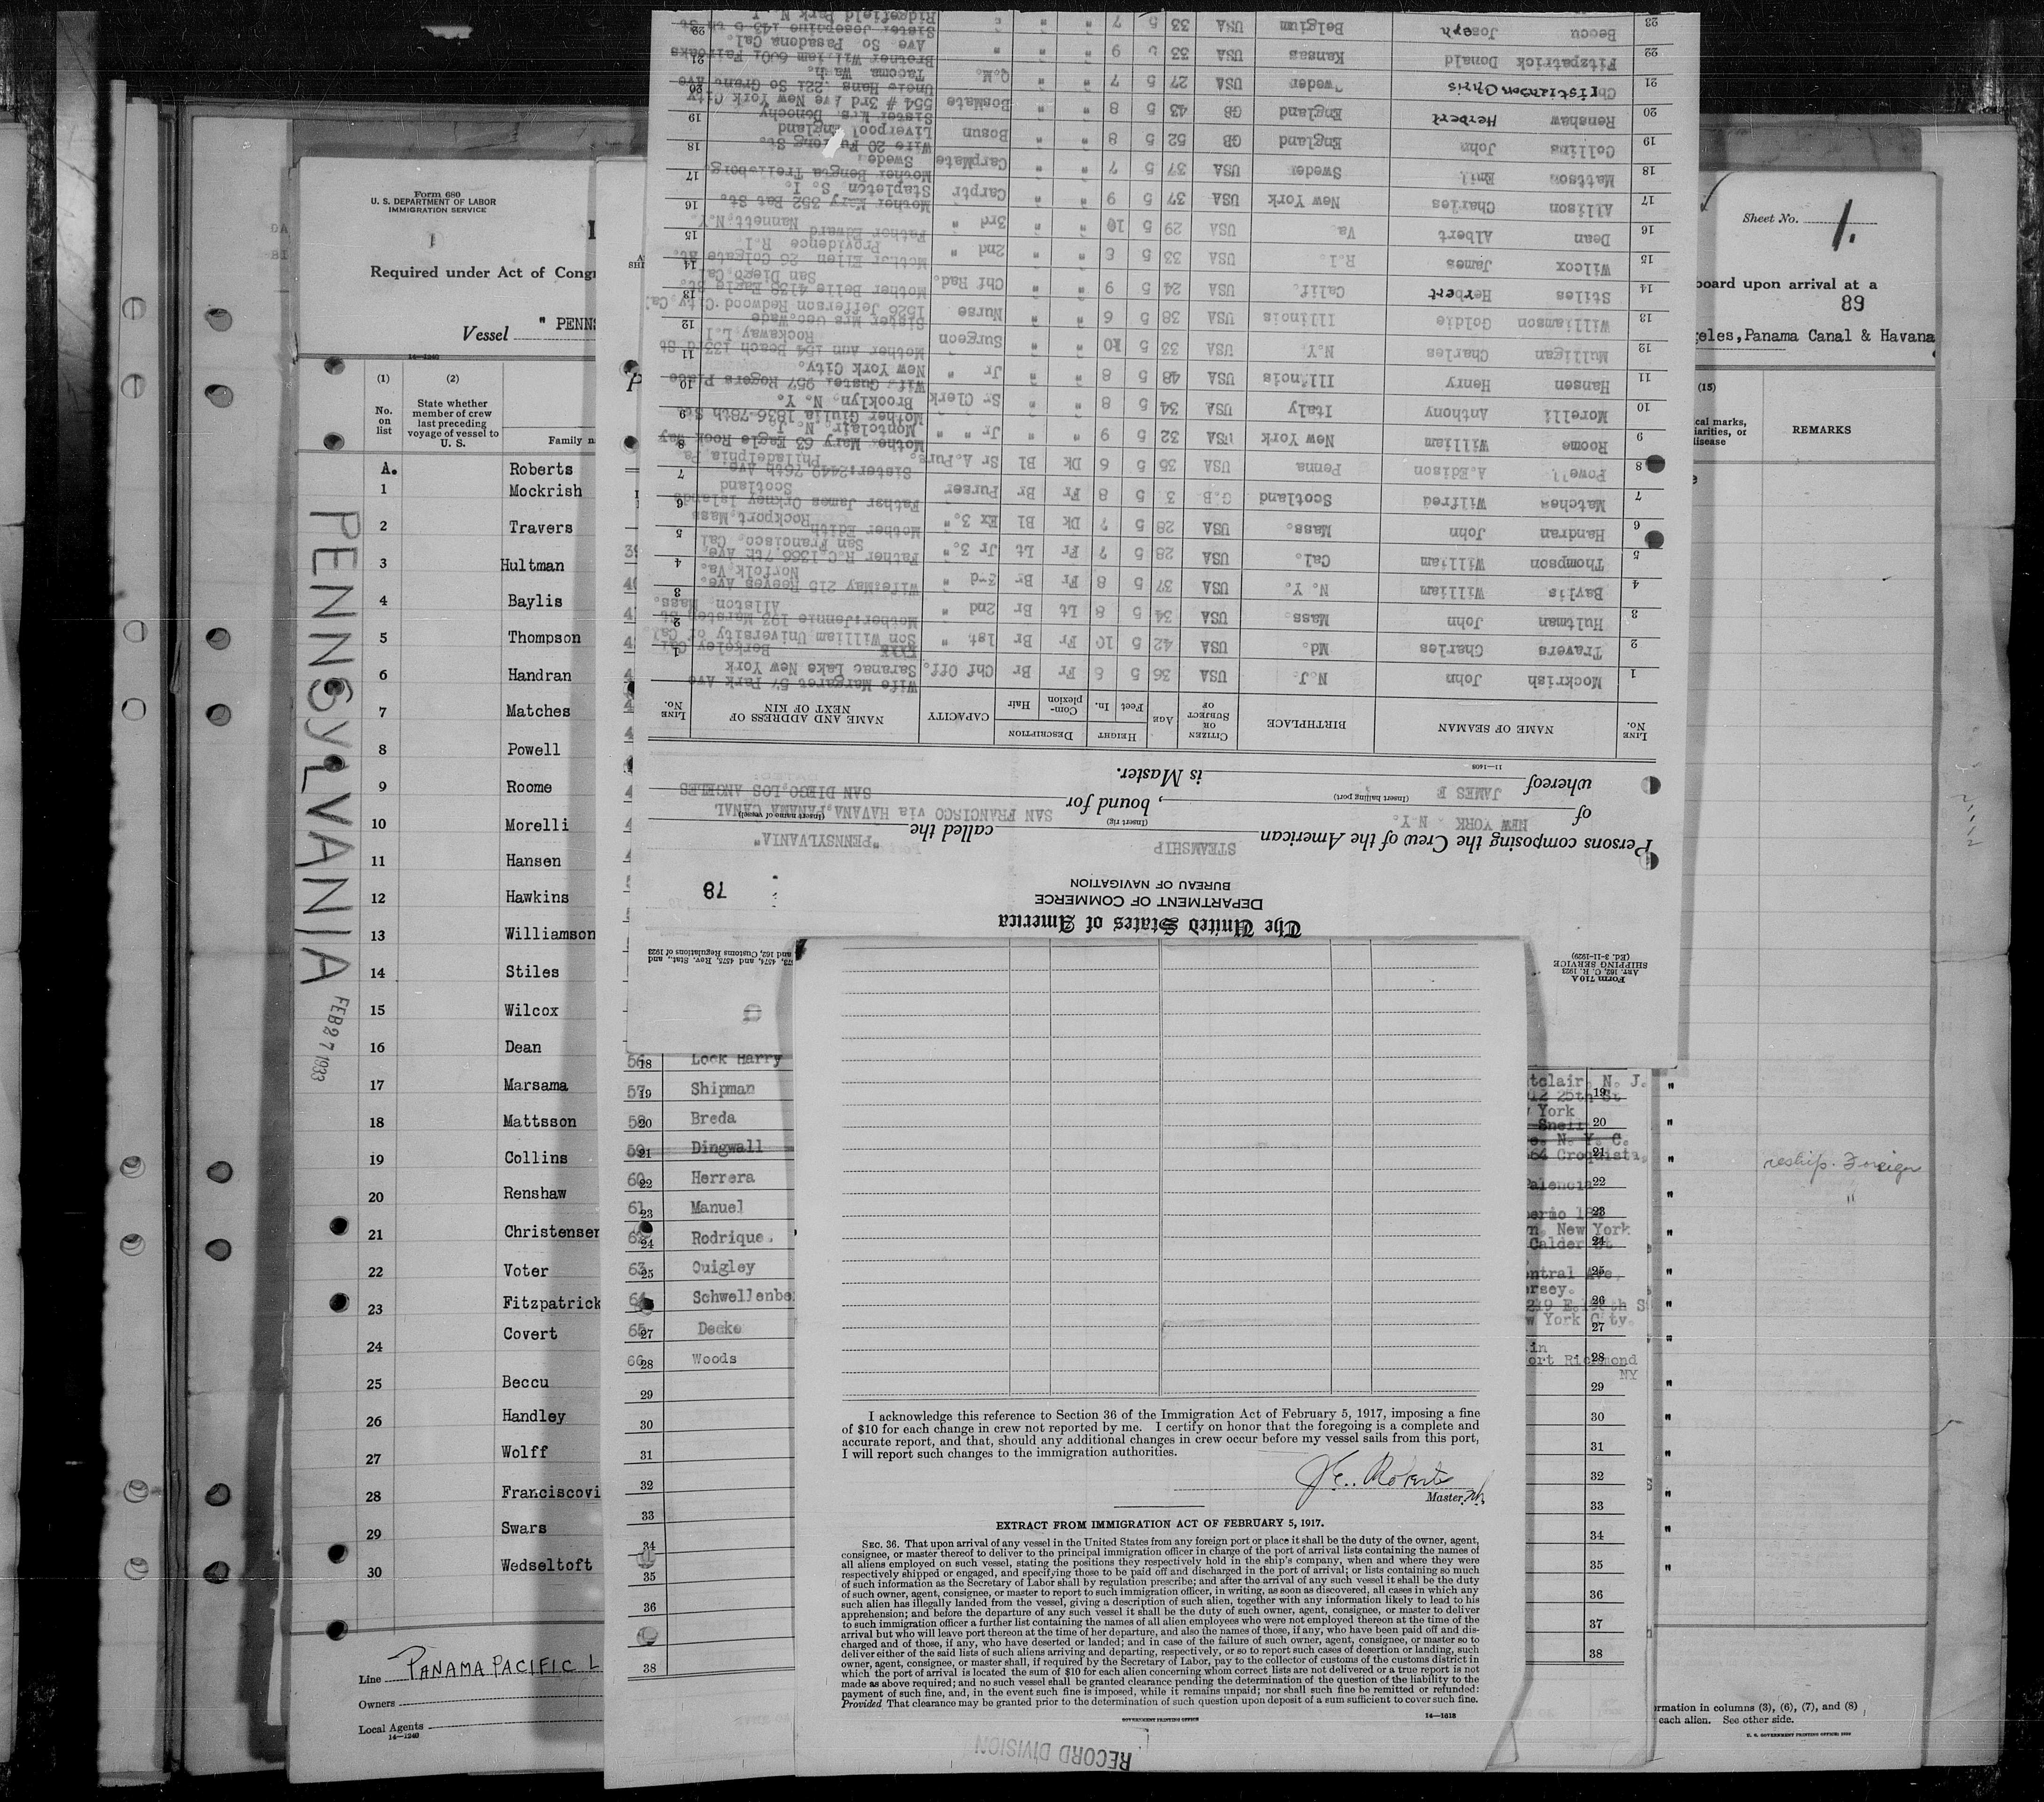 Form 680
U. S. DEPARTMENT OF LABOR
IMMIGRATION SERVICE
Required under Act of Cong
Vessel " PENNS
14—1240
(1) (2)
No. on list
State whether member of crew last preceding voyage of vessel to U. S.
Family n
A. Roberts
1 Mockrish
2 Travers
3 Hultman
4 Baylis
5 Thompson
6 Handran
7 Matches
8 Powell
9 Roome
10 Morelli
11 Hansen
12 Hawkins
13 Williamson
14 Stiles
15 Wilcox
16 Dean
17 Marsama
18 Mattsson
19 Collins
20 Renshaw
21 Christensen
22 Voter
23 Fitzpatrick
24 Covert
25 Beccu
26 Handley
27 Wolff
28 Franciscovi
29 Swars
30 Wedseltoft
PENNSyLVANIA
FEB 27 1933
Line PANAMA PACIFIC L
Owners
Local Agents
14—1240
Form 710A
ART. 162, C. R. 1923
SHIPPING SERVICE
(Ed. 3-11-1929)
and 162, Customs Regulations of 1923
The United States of America
DEPARTMENT OF COMMERCE
BUREAU OF NAVIGATION
78
Persons composing the Crew of the American STEAMSHIP called the "PENNSYLVANIA"
(Insert rig) (Insert name of vessel)
of NEW YORK N Y. , bound for SAN FRANCISCO via HAVANA, PANAMA CANAL
(Insert hailing port)
SAN DIEGO, LOS ANGELES
whereof JAMES E is Master.
11—1408
LINE No. NAME OF SEAMAN BIRTHPLACE CITIZEN OR SUBJECT OF AGE HEIGHT Feet In. DESCRIPTION Complexion Hair CAPACITY NAME AND ADDRESS OF NEXT OF KIN LINE No.
1 Mockrish John N.J. USA 36 5 8 Fr Br Chf Off. Wife Margaret 57 Park Ave Saranac Lake New York
2 Travers Charles Md. USA 42 5 10 Fr Br 1st " Son William University of Cal. Berkeley Cal
3 Hultman John Mass. USA 34 5 8 Lt Br 2nd " Mother:Jennie 193 Marsten St Allston Mass.
4 Baylis William N. Y. USA 37 5 8 Fr Br 3rd " Wife:May 215 Reeves Ave. Norfolk Va.
5 Thompson William Cal. USA 28 5 7 Fr Lt Jr 3. " Father R.C. 1366 7th Ave. San Francisco, Cal
6 Handran John Mass. USA 28 5 7 Dk Bl Ex 3. " Mother Edith Rockport, Mass
7 Matches Wilfred Scotland G.B. 3 5 8 Fr Br Purser Father James Orkney Islands Scotland
8 Powell A.Edison Penna USA 35 5 6 Dk Bl Sr A.Purs. Sister: 2449 76th Ave. Philadelphia Pa
9 Roome William New York USA 32 5 9 " " Jr " " Mother Mary 63 Eagle Rock Way Montclair, N. J.
10 Morelli Anthony Italy USA 34 5 8 " " Sr Clerk Mother Giulia 1836 78th St. Brooklyn, N. Y.
11 Hansen Henry Illinois USA 48 5 8 " " Jr " Wife Gustel 957 Rogers Place New York City.
12 Mulligan Charles N.Y. USA 33 5 10 " " Surgeon Mother Ann 154 Beach 133rd St Rockaway L.I
13 Williamson Goldie Illinois USA 38 5 6 " " Nurse Sister Mrs Geo. Wade 1526 Jefferson Redwood City, Cal
14 Stiles Herbert Calif. USA 24 5 9 " " Chf Rad. Mother Belle 4138 Eagle St. San Diego, Cal
15 Wilcox James R.I. USA 33 5 8 " " 2nd " Mother Ellen 26 Colgate St. Providence R.I
16 Dean Albert Va. USA 29 5 10 " " 3rd " Father Edward Nannett, N.Y.
17 Allison Charles New York USA 37 5 9 " " Carptr Mother Mary 352 Bat St. Stapleton S. I.
18 Mattson Emil Sweden USA 37 5 7 " " CarpMate Mother Bengta Trelleborg Sweden
19 Collins John England GB 52 5 8 " " Bosun Wife 20 St. Liverpool England
20 Renshaw Herbert England GB 43 5 8 " " BosMate Sister Mrs. Donochy 554 # 3rd Ave New York City
21 Christianson Chris Sweden USA 27 5 7 " " Q.M. Uncle Hans 1221 So Grant Ave Tacoma Wash.
22 Fitzpatrick Donald Kansas USA 33 5 9 " " " Brother William 600 Fairoaks Ave So Pasadena Cal.
23 Beccu Joseph Belgium USA 33 5 7 " " " Sister Josephine 143 5 th St Ridgefield Park N. J.
56 18 Lock Harry
57 19 Shipman
58 20 Breda
59 21 Dingwall
60 22 Herrera
61 23 Manuel
62 24 Rodrique
63 25 Quigley
64 Schwellenbe
65 27 Deeke
66 28 Woods
29
30
31
32
33
34
35
36
38
I acknowledge this reference to Section 36 of the Immigration Act of February 5, 1917, imposing a fine
of $10 for each change in crew not reported by me. I certify on honor that the foregoing is a complete and
accurate report, and that, should any additional changes in crew occur before my vessel sails from this port,
I will report such changes to the immigration authorities.
J.E. Roberts
Master.
EXTRACT FROM IMMIGRATION ACT OF FEBRUARY 5, 1917.
SEC. 36. That upon arrival of any vessel in the United States from any foreign port or place it shall be the duty of the owner, agent,
consignee, or master thereof to deliver to the principal immigration officer in charge of the port of arrival lists containing the names of
all aliens employed on such vessel, stating the positions they respectively hold in the ship's company, when and where they were
respectively shipped or engaged, and specifying those to be paid off and discharged in the port of arrival; or lists containing so much
of such information as the Secretary of Labor shall by regulation prescribe; and after the arrival of any such vessel it shall be the duty
of such owner, agent, consignee, or master to report to such immigration officer, in writing, as soon as discovered, all cases in which any
such alien has illegally landed from the vessel, giving a description of such alien, together with any information likely to lead to his
apprehension; and before the departure of any such vessel it shall be the duty of such owner, agent, consignee, or master to deliver
to such immigration officer a further list containing the names of all alien employees who were not employed thereon at the time of the
arrival but who will leave port thereon at the time of her departure, and also the names of those, if any, who have been paid off and dis-
charged and of those, if any, who have deserted or landed; and in case of the failure of such owner, agent, consignee, or master so to
deliver either of the said lists of such aliens arriving and departing, respectively, or so to report such cases of desertion or landing, such
owner, agent, consignee, or master shall, if required by the Secretary of Labor, pay to the collector of customs of the customs district in
which the port of arrival is located the sum of $10 for each alien concerning whom correct lists are not delivered or a true report is not
made as above required; and no such vessel shall be granted clearance pending the determination of the question of the liability to the
payment of such fine, and, in the event such fine is imposed, while it remains unpaid; nor shall such fine be remitted or refunded:
Provided That clearance may be granted prior to the determination of such question upon deposit of a sum sufficient to cover such fine.
GOVERNMENT PRINTING OFFICE
14—1618
RECORD DIVISION
tclair, N. J.
19
12 25th St
York
Snell 20
N. Y. C.
64 Croquista 21
Palencia 22
23
New York
Calder St 24
ntral Ave, 25
ersey. 26
w York City. 27
28
ort Richmond
NY
29
30
31
32
33
34
35
36
37
38
Sheet No. 1.
board upon arrival at a
89
eles, Panama Canal & Havana
(15)
cal marks,
iarities, or
disease
REMARKS
reship. Foreign
"
rmation in columns (3), (6), (7), and (8)
each alien. See other side.
U. S. GOVERNMENT PRINTING OFFICE